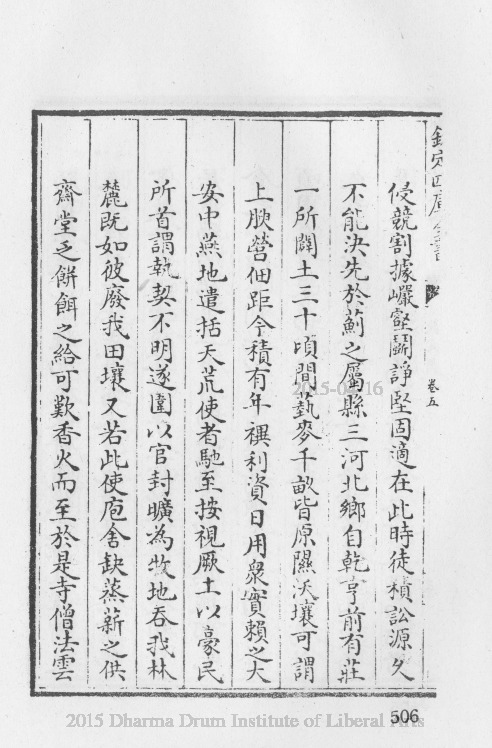 欽定四庫全書
卷五
侵競割據巖壑鬬諍堅固適在此時徒積訟源久
不能決先於薊之屬縣三河北鄉自乾亨前有莊
一所闢土三十頃間藝麥千畝皆原隰沃壤可謂
上腴營佃距今積有年禩利資日用衆實賴之大
安中燕地遣括天荒使者馳至按視厥土以豪民
所首謂執契不明遂圍以官封曠為牧地吞我林
麓既如彼廢我田壤又若此使庖舍缺蒸薪之供
齋堂乏餅餌之給可歎香火而至於是寺僧法雲
506
2015 Dharma Drum Institute of Liberal Arts